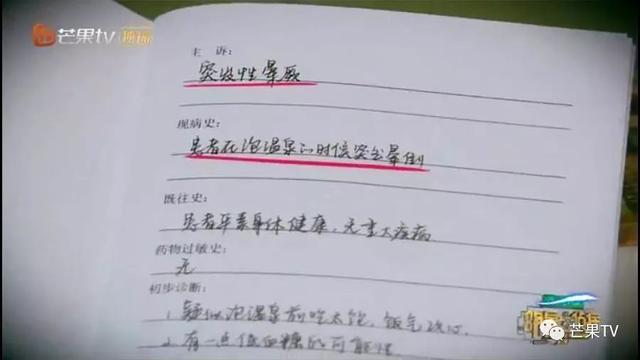 芒果TV 独播
主 诉：
突发性晕厥
现病史：
患者在泡温泉的时候突然晕倒
既往史：
患者平素身体健康，无重大疾病
药物过敏史：
无
初步诊断：
1、疑似泡温泉前吃太饱，饭气攻心
2、有一点低血糖的可能性
明星大侦探
芒果TV